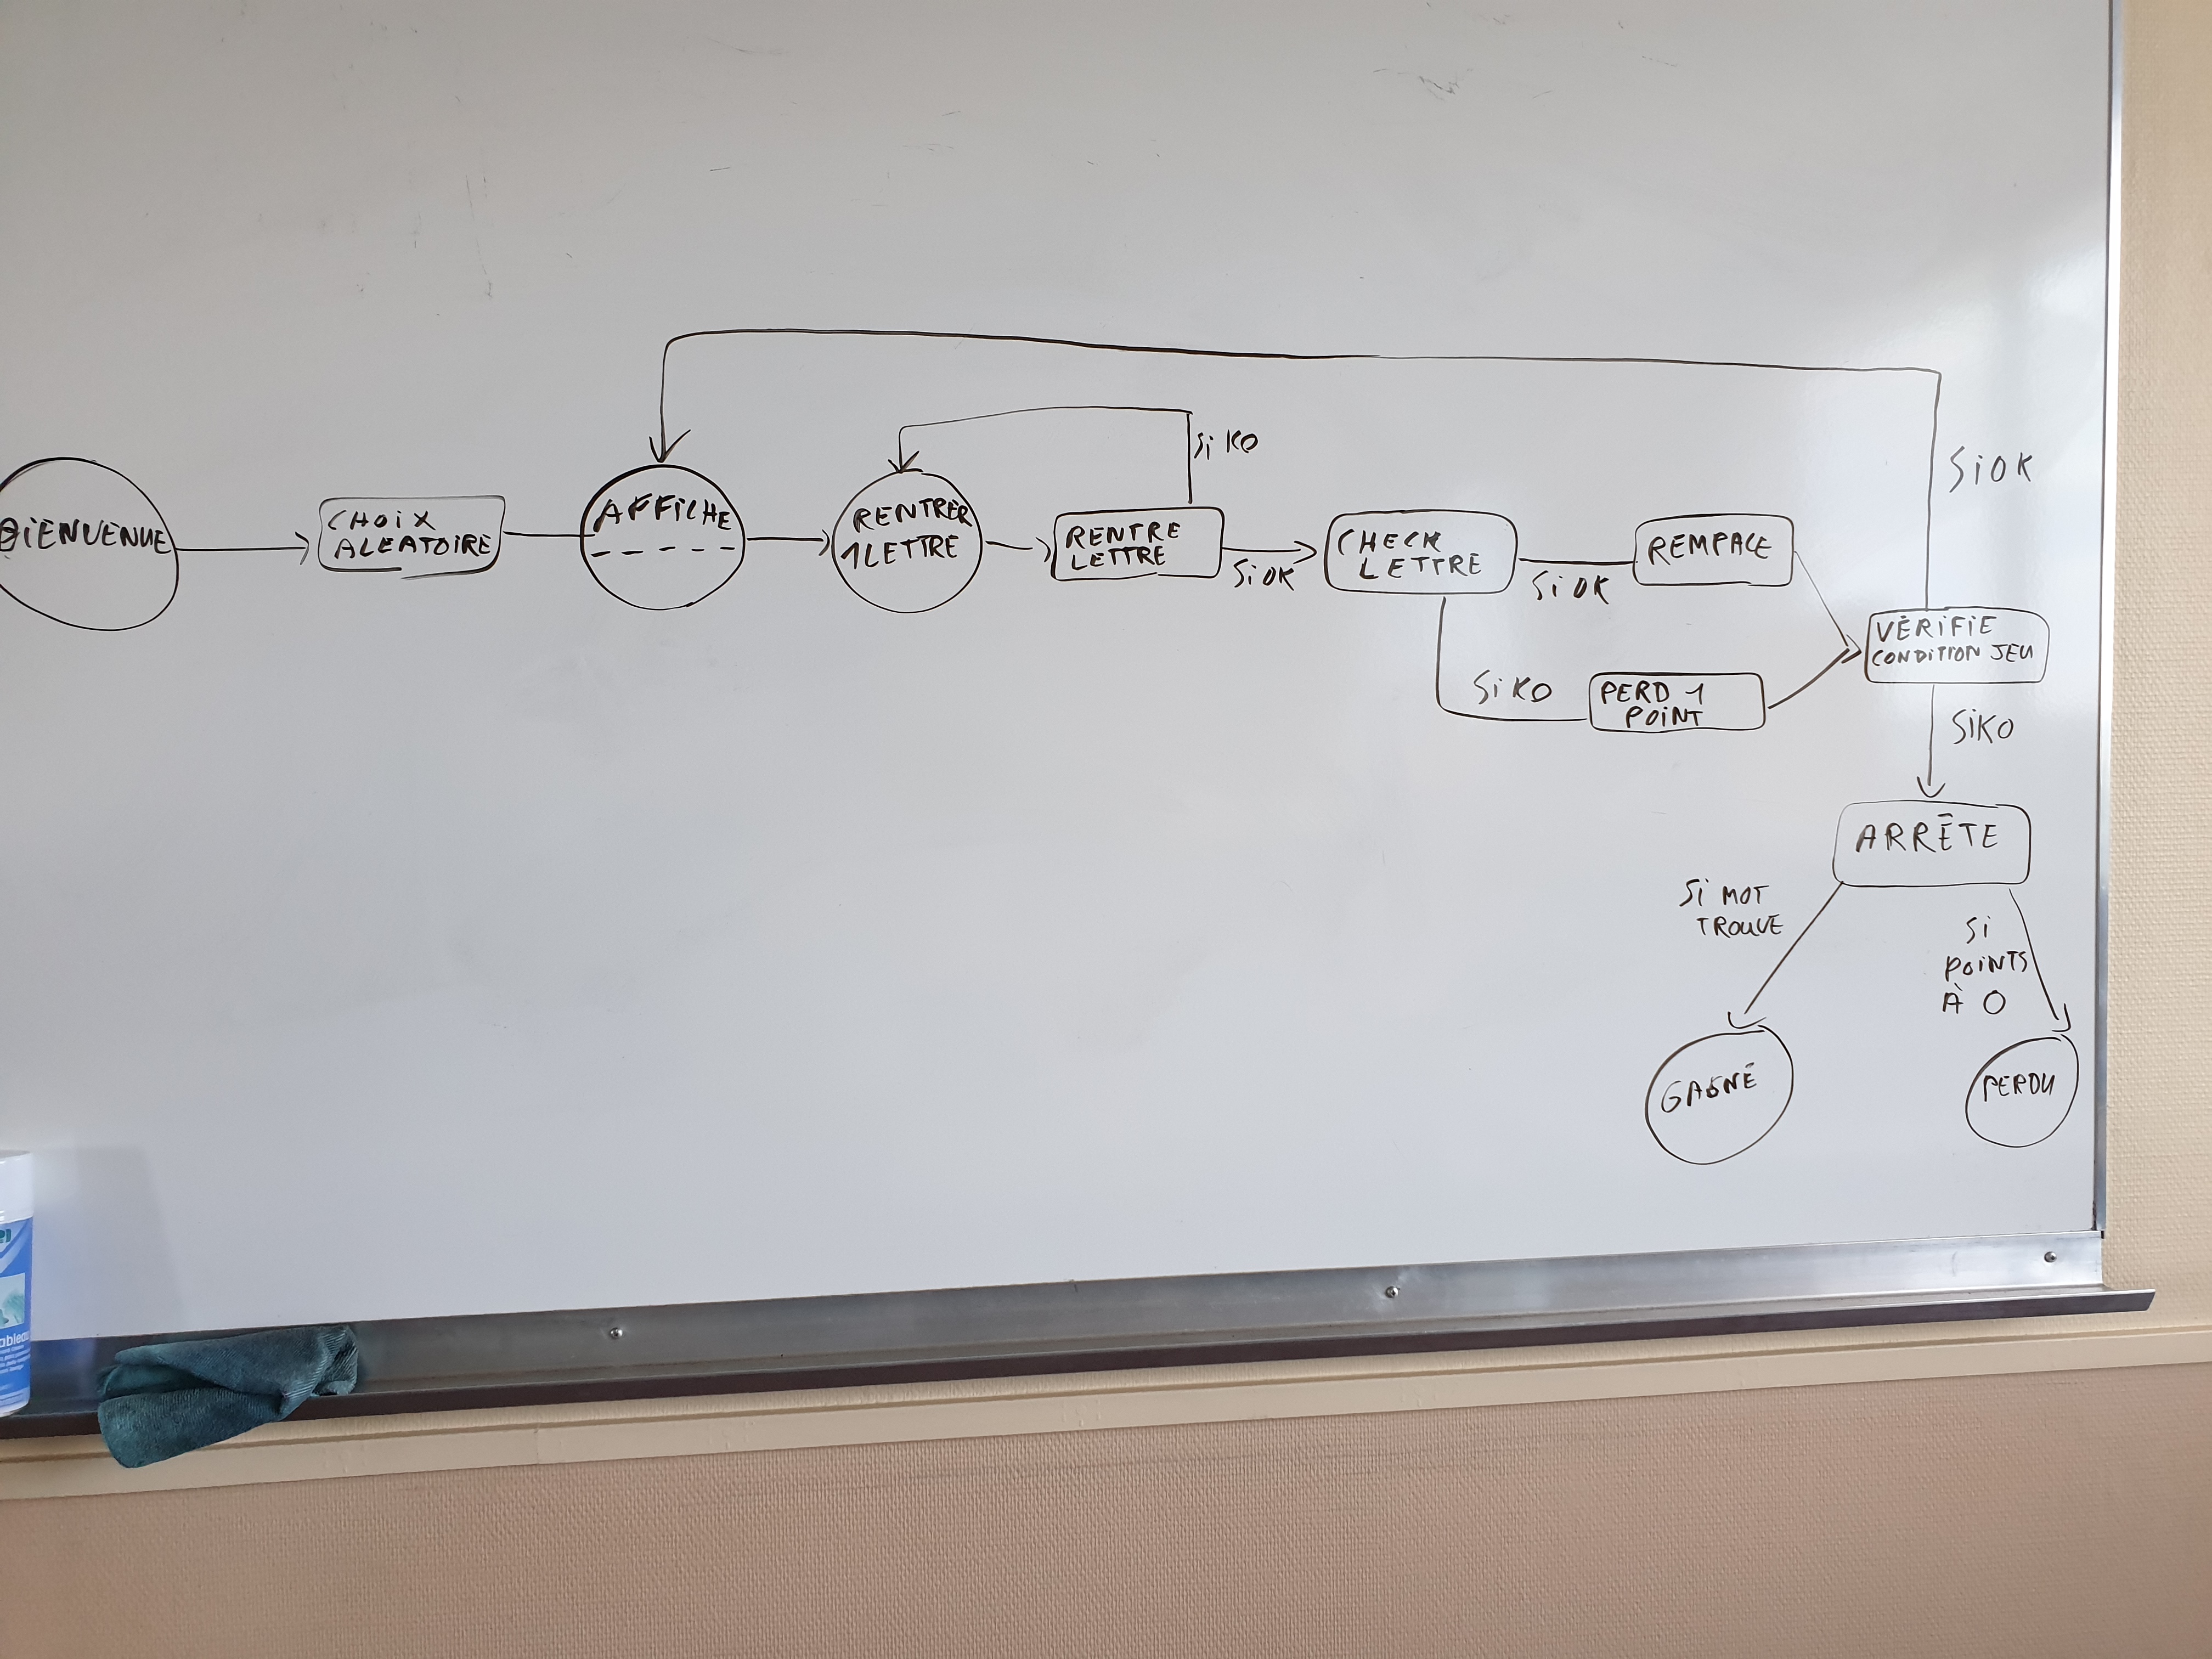 BIENVENUE
CHOIX
ALEATOIRE
AFFICHE
_ _ _ _ _
RENTRER
1 LETTRE
RENTRE
LETTRE
Si KO
Si OK
CHECK
LETTRE
Si OK
REMPACE
Si KO
PERD 1
POINT
VÉRIFIE
CONDITION JEU
Si OK
Si KO
ARRÊTE
Si MOT
TROUVE
Si
POINTS
À 0
GAGNÉ
PERDU
ableau